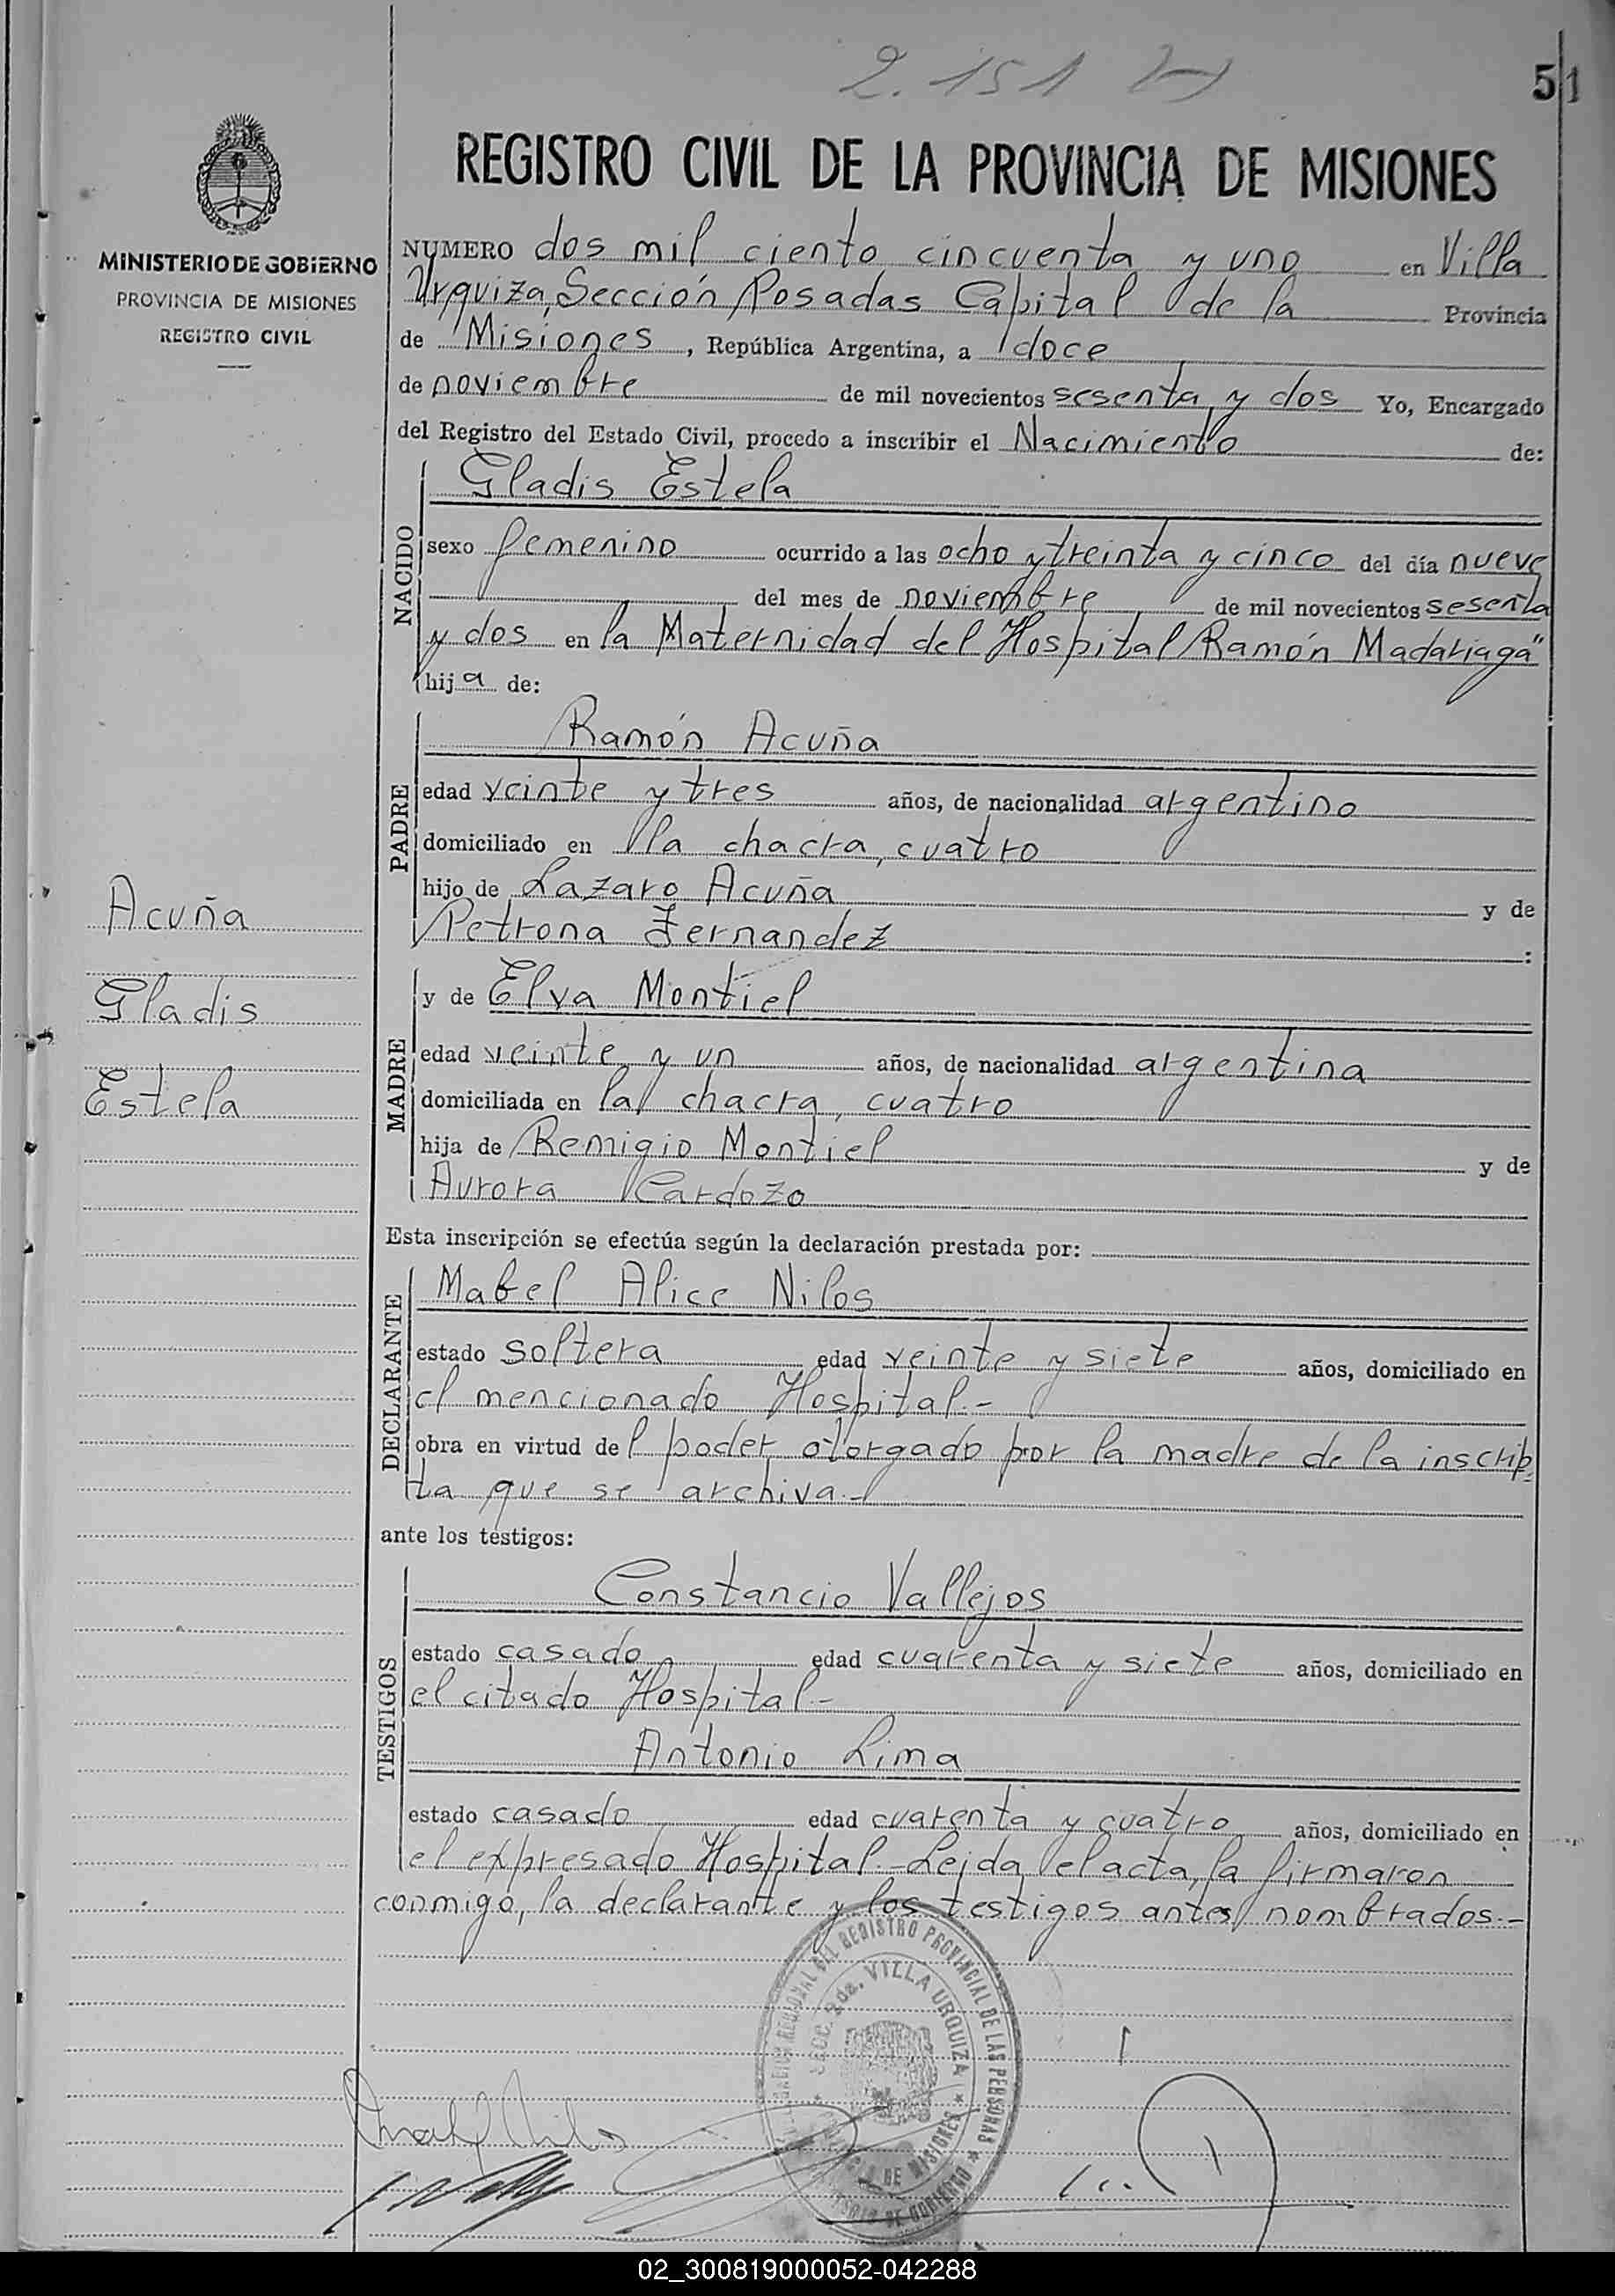 2.151
51
REGISTRO CIVIL DE LA PROVINCIA DE MISIONES
MINISTERIO DE GOBIERNO
PROVINCIA DE MISIONES
REGISTRO CIVIL
NUMERO dos mil ciento cincuenta y uno en Villa
Urquiza, Sección Posadas Capital de la Provincia
de Misiones, República Argentina, a doce
de noviembre de mil novecientos sesenta y dos Yo, Encargado
del Registro del Estado Civil, procedo a inscribir el Nacimiento de:
NACIDO
Gladis Estela
sexo femenino ocurrido a las ocho y treinta y cinco del día nueve
del mes de noviembre de mil novecientos sesenta
y dos en la Maternidad del Hospital "Ramón Madariaga"
hija de:
PADRE
Ramón Acuña
edad veinte y tres años, de nacionalidad argentino
domiciliado en la chacra cuatro
hijo de Lazaro Acuña y de
Petrona Fernandez :
Acuña
Gladis
Estela
MADRE
y de Elva Montiel
edad veinte y un años, de nacionalidad argentina
domiciliada en la chacra cuatro
hija de Remigio Montiel y de
Aurora Cardozo
Esta inscripción se efectúa según la declaración prestada por:
DECLARANTE
Mabel Alice Nilos
estado soltera edad veinte y siete años, domiciliado en
el mencionado Hospital.-
obra en virtud del poder otorgado por la madre de la inscrip
ta que se archiva.-
ante los testigos:
TESTIGOS
Constancio Vallejos
estado casado edad cuarenta y siete años, domiciliado en
el citado Hospital.-
Antonio Lima
estado casado edad cuarenta y cuatro años, domiciliado en
el expresado Hospital.-Leida el acta, la firmaron
conmigo, la declarante y los testigos antes nombrados.-
DEL REGISTRO PROVINCIAL DE LAS PERSONAS
SECC. 2da. VILLA URQUIZA
DE MISIONES
DE GOBIERNO
02_300819000052-042288